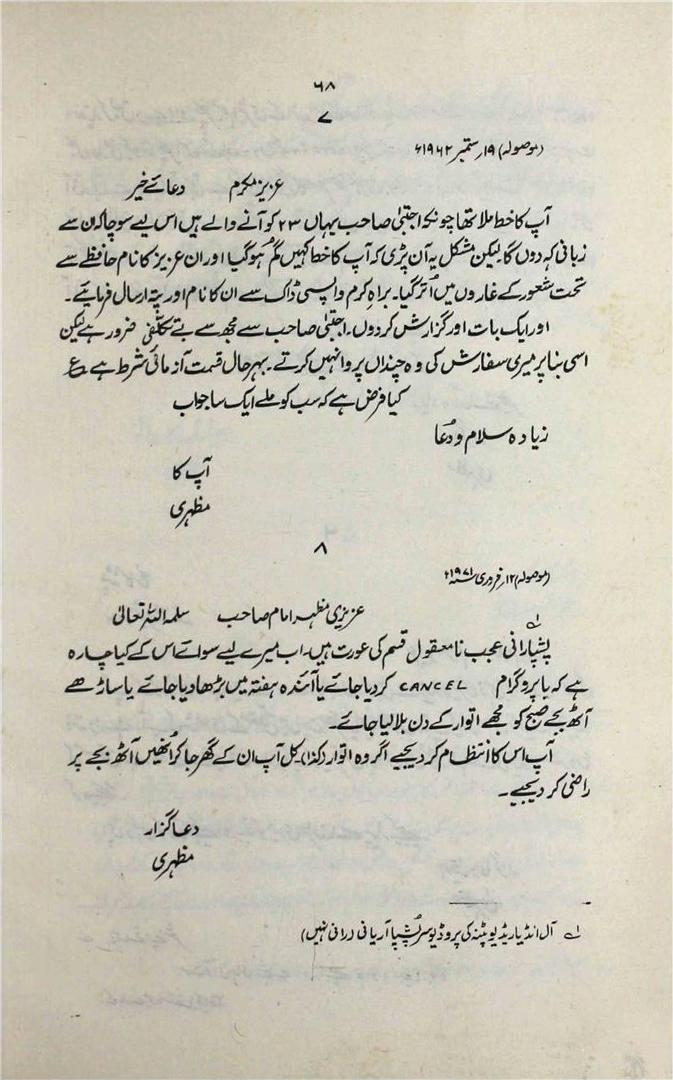 ۶۸
۷
(موصولہ) ۱۹ ستمبر ۱۹۶۲ء
عزیز مکرم دعائے خیر
آپ کا خط ملا تھا چونکہ اجتبیٰ صاحب یہاں ۲۳ کو آنے والے ہیں اس لیے سوچا کہ ان سے
زبانی کہہ دوں گا لیکن مشکل یہ آن پڑی کہ آپ کا خط کہیں گم ہو گیا اور ان عزیز کا نام حافظے سے
تحت شعور کے غاروں میں اُتر گیا۔ براہِ کرم واپسی ڈاک سے ان کا نام اور پتہ ارسال فرمائیے۔
اور ایک بات اور گزارش کردوں۔ اجتبیٰ صاحب سے مجھ سے بے تکلفی ضرور ہے لیکن
اسی بنا پر میری سفارش کی وہ چنداں پروا نہیں کرتے۔ بہرحال قسمت آزمائی شرط ہے ؏
کیا فرض ہے کہ سب کو ملے ایک سا جواب
زیادہ سلام و دُعا
آپ کا
مظہری
۸
(موصولہ) ۱۲ فروری ۱۹۷۱ء
عزیزی مظہر امام صاحب سلمہ اللہ تعالیٰ
پشپارانی۱؎ عجب نامعقول قسم کی عورت ہیں۔ اب میرے لیے سوائے اس کے کیا چارہ
ہے کہ یا پروگرام CANCEL کر دیا جائے یا آئندہ ہفتہ میں بڑھا دیا جائے یا ساڑھے
آٹھ بجے صبح کو مجھے اتوار کے دن بلا لیا جائے۔
آپ اس کا انتظام کر دیجیے اگر وہ اتوار (کذا)۔ کل آپ ان کے گھر جا کر اُنھیں آٹھ بجے پر
راضی کر دیجیے۔
دعا گزار
مظہری
۱؎ آل انڈیا ریڈیو پٹنہ کی پروڈیوسر پُشپا آریانی (رانی نہیں)